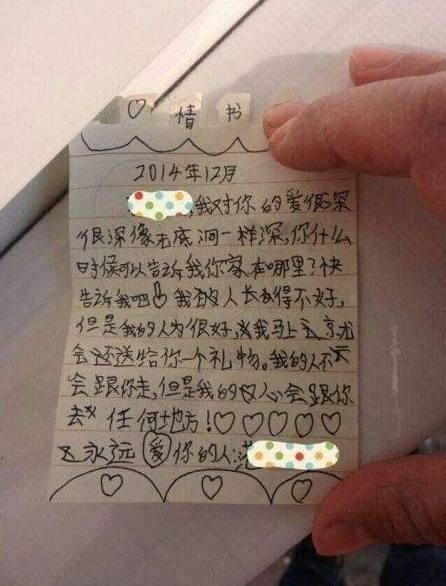 ♡ 情 书
2014年12月
,我对你的爱很深
很深像无底洞一样深,你什么
时候可以告诉我你家在哪里?快
告诉我吧 我 人长得不好,
但是我的人为很好,我马上
会还送给你一个礼物。我的人不
会跟你走,但是我的 心会跟你
去 任何地方!♡♡♡♡♡
永远 爱 你的人: